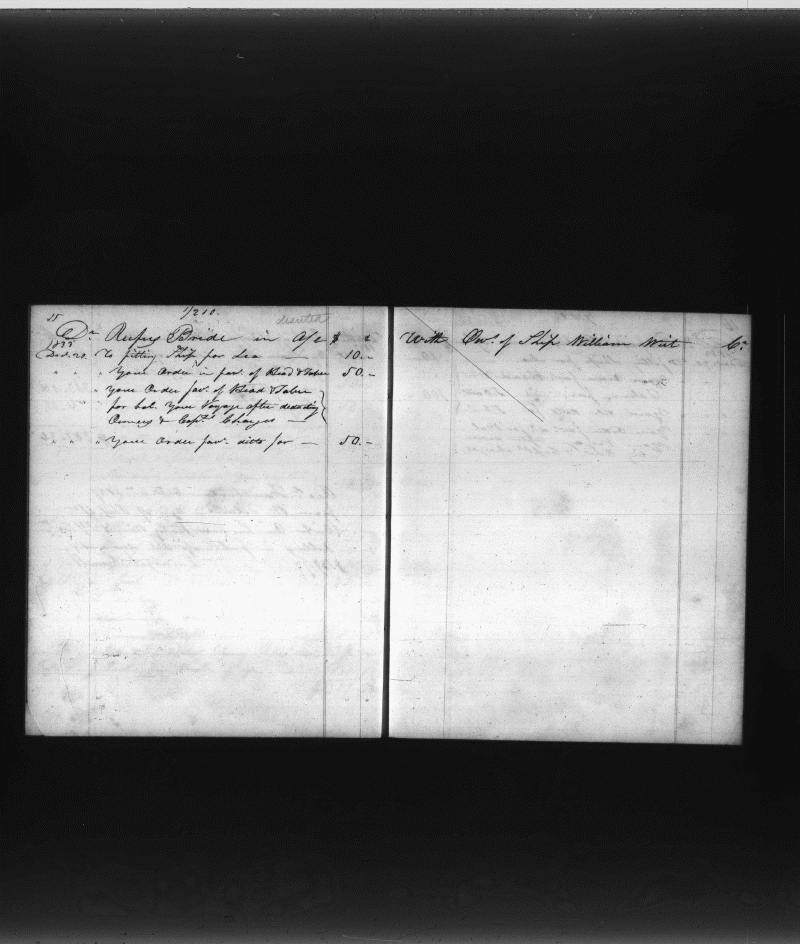 25
1/210.
deserted
Dr Rufus Bride in A/c $ c
With Ows of Ship William Wirt Cr
1833
Decr 20. To fitting Ship for Sea — 10.-
" " " Your Order in fav. of Head & Taber 50.-
" Your Order fav. of Head & Taber
for bal. Your Voyage after deducting
Owners & Capts Charges —
" " " Your Order fav. ditto for — 50.-